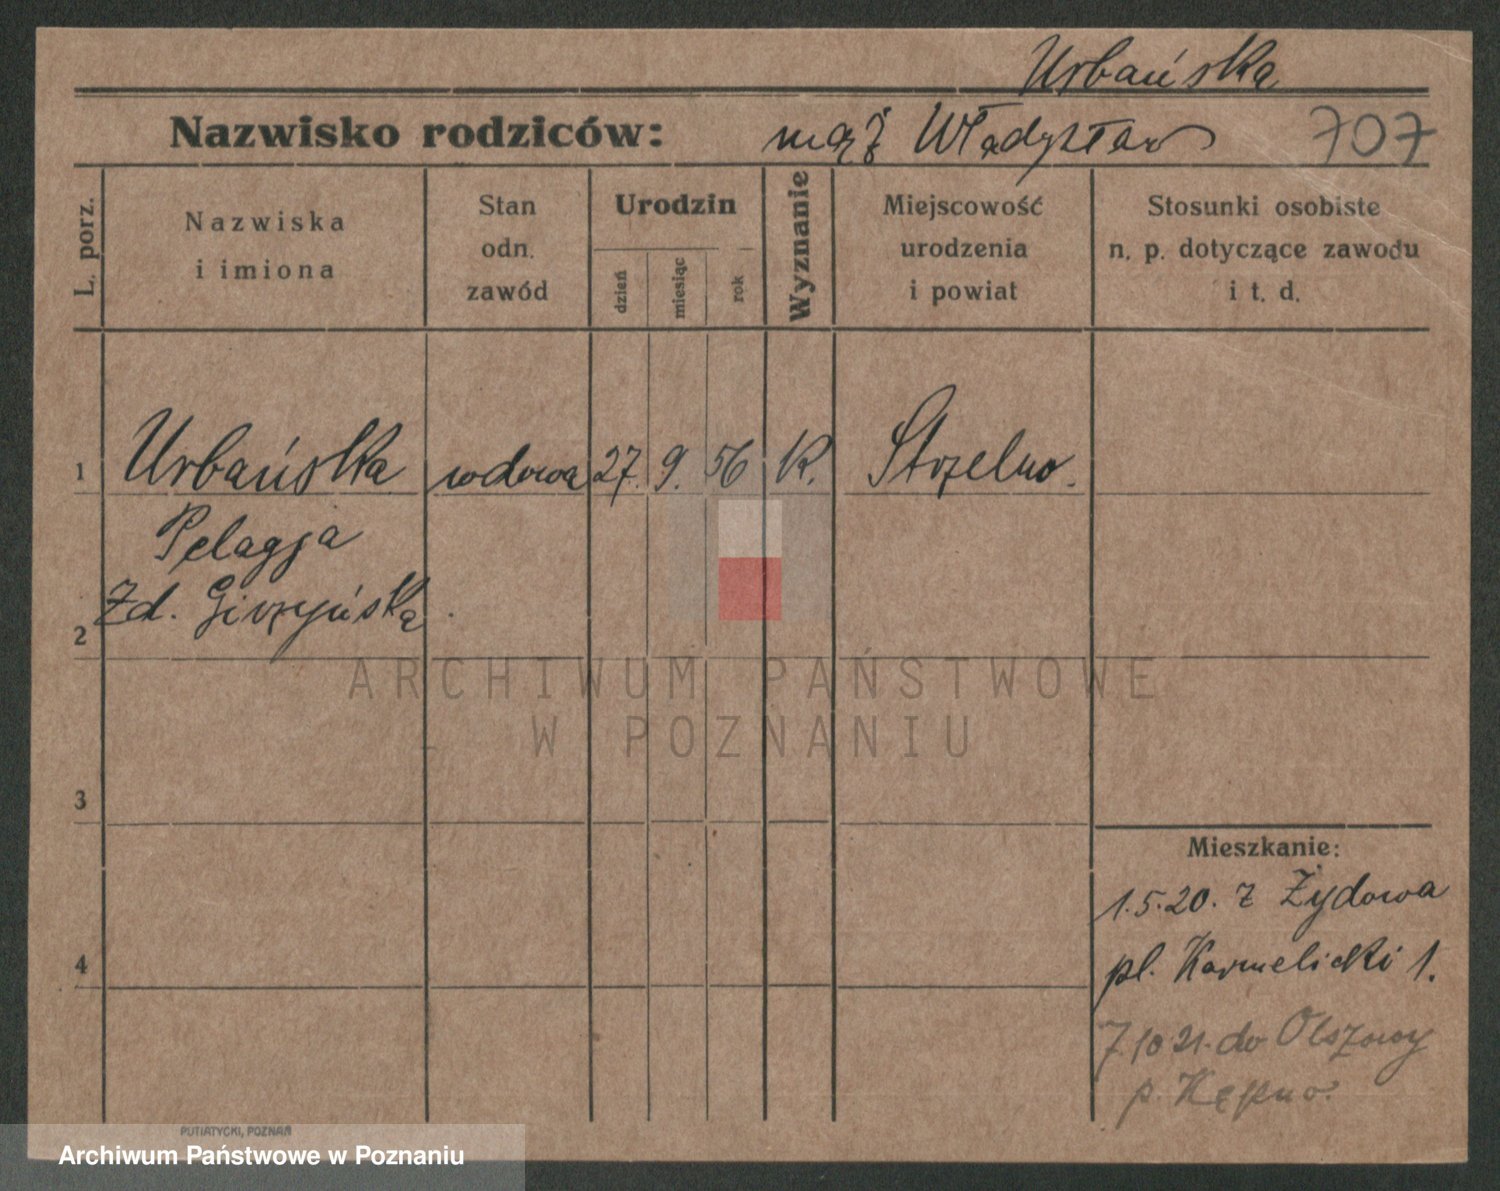 Urbańska
Nazwisko rodziców: mąż Władysław 707
L. porz.
Nazwiska
i imiona
Stan
odn.
zawód
Urodzin
dzień
miesiąc
rok
Wyznanie
Miejscowość
urodzenia
i powiat
Stosunki osobiste
n. p. dotyczące zawodu
i t. d.
1 Urbańska wdowa 27. 9. 56 K. Strzelno.
Pelagja
2 Zd. Girzyńska
ARCHIWUM PAŃSTWOWE
W POZNANIU
3
Mieszkanie:
1.5.20. z Żydowa
4 pl. Karmelicki 1.
7.10.21. do Olszowy
p. Kępno.
PUTIATYCKI, POZNAŃ
Archiwum Państwowe w Poznaniu